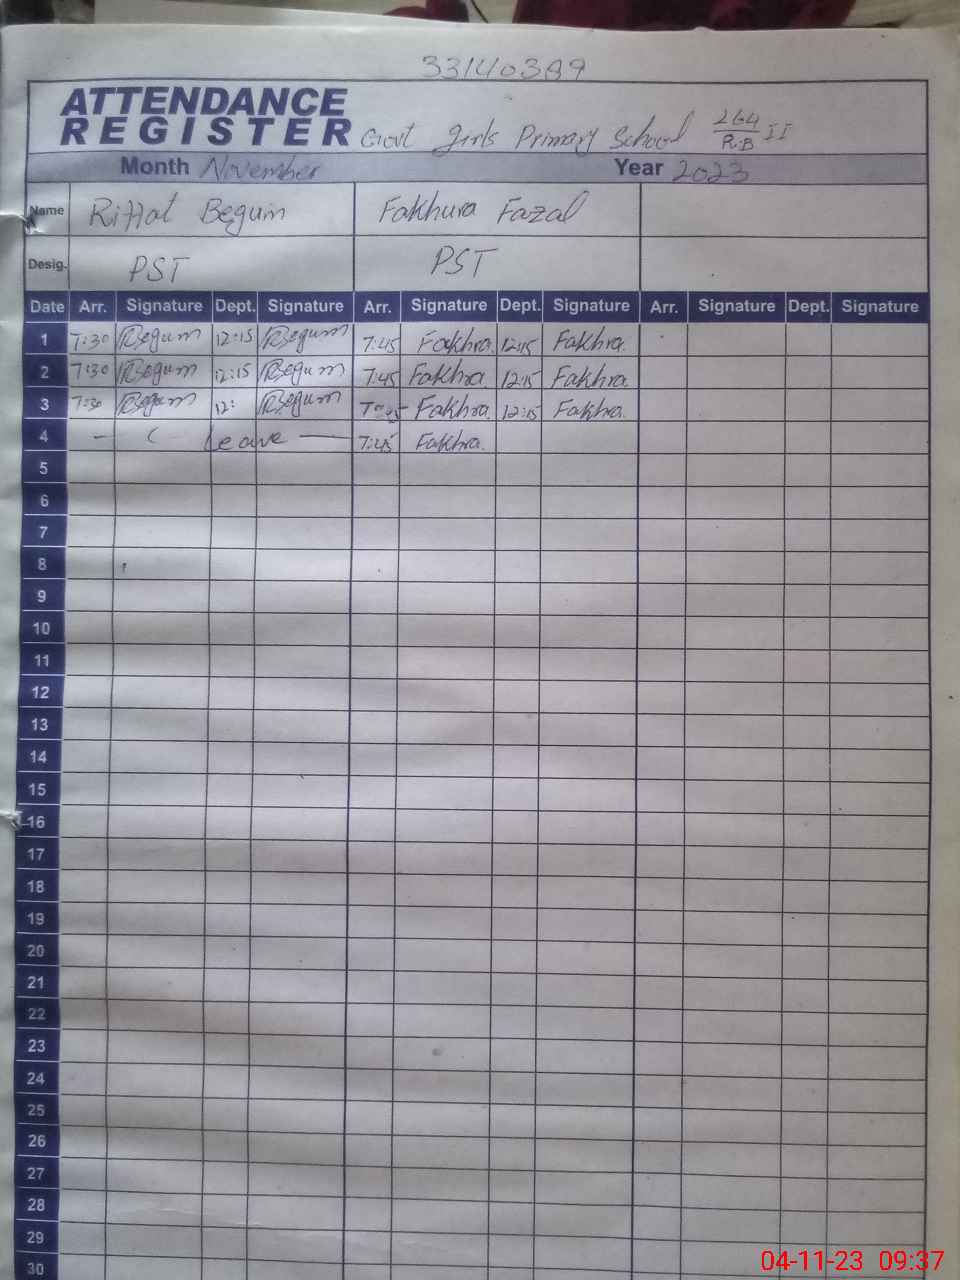 33140389
ATTENDANCE
REGISTER Govt Girls Primary School 264/R.B II
Month November Year 2023
Name Riffat Begum Fakhura Fazal
Desig. PST PST
Date Arr. Signature Dept. Signature Arr. Signature Dept. Signature Arr. Signature Dept. Signature
1 7:30 RBegum 12:15 RBegum 7:45 Fakhra 12:15 Fakhra
2 7:30 RBegum 12:15 RBegum 7:45 Fakhra 12:15 Fakhra
3 7:30 RBegum 12: RBegum Fakhra 12:15 Fakhra
4 — ( Leave — 7:45 Fakhra
5
6
7
8
9
10
11
12
13
14
15
16
17
18
19
20
21
22
23
24
25
26
27
28
29
30
04-11-23 09:37